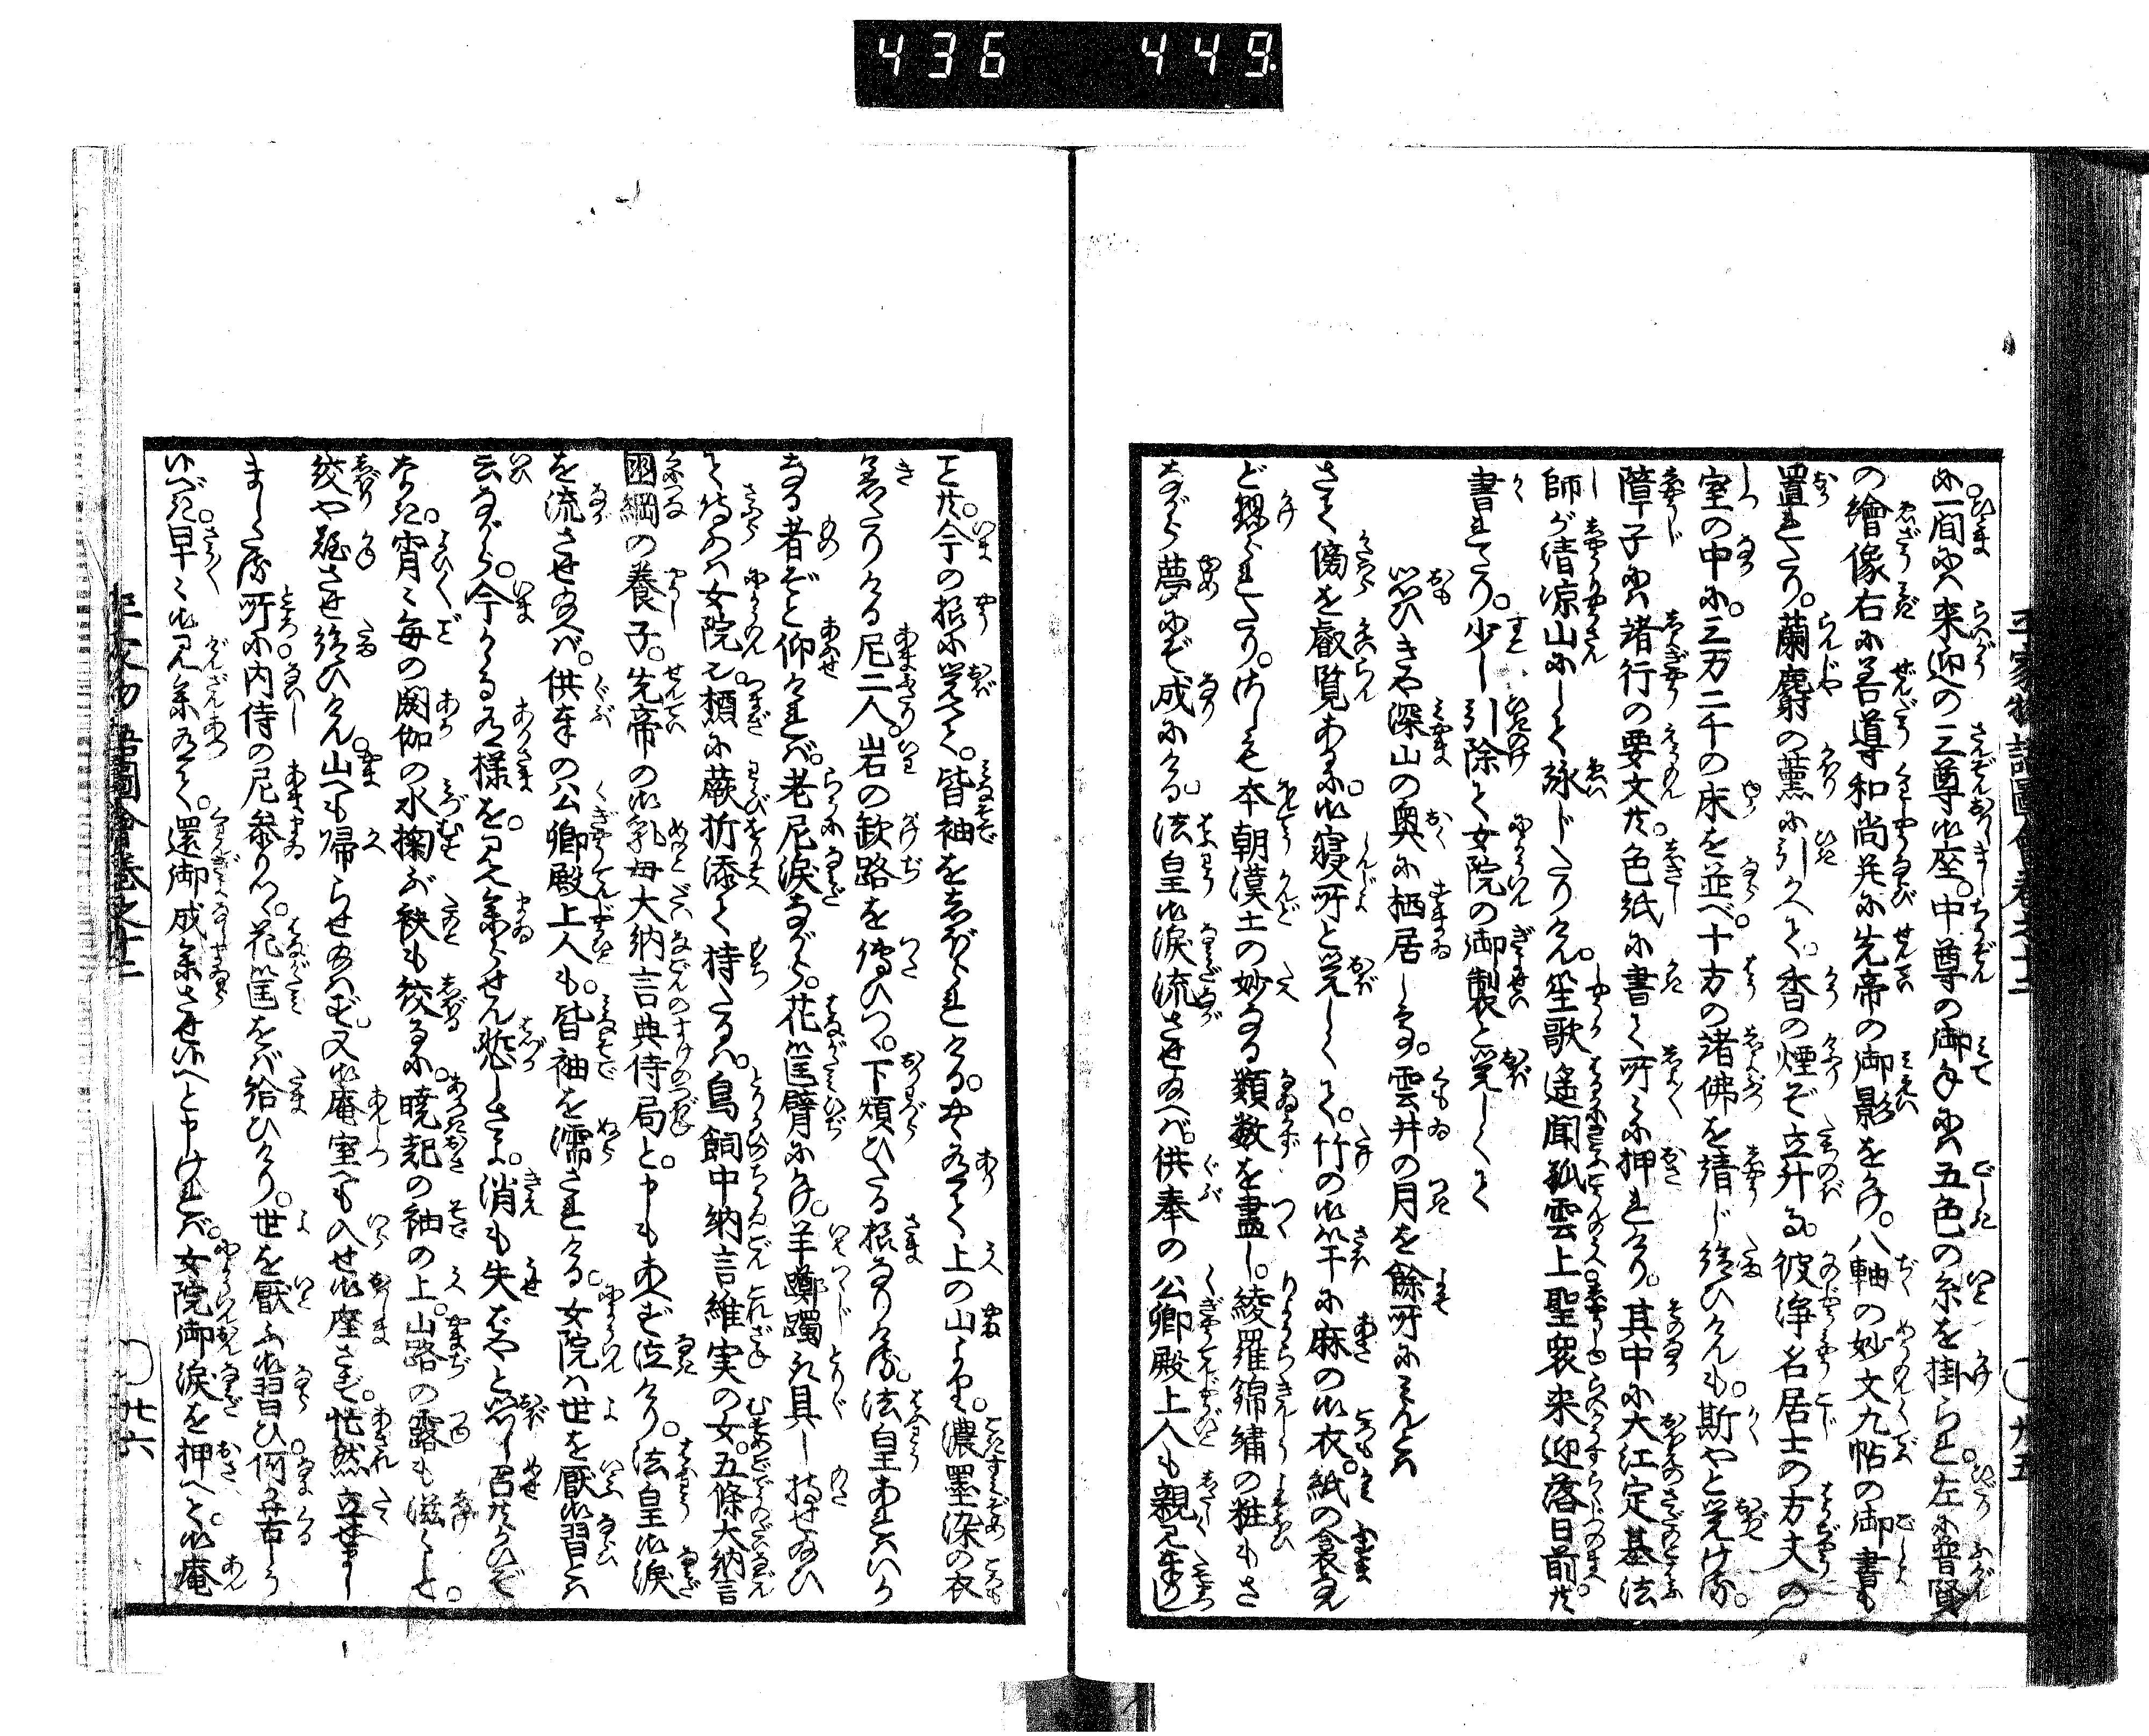 436 449.
平家物語圖會卷之十二
〇廿五
に一間には来迎の三尊御座。中尊の御手には五色の糸を掛られ。左に普賢
の繪像右に善導和尚并に先帝の御影をかけ。八軸の妙文九帖の御書も
置れたり。蘭麝の薫に引かへて。香の煙ぞ立升る。彼浄名居士の方丈の
室の中に。三万二千の床を並べ。十方の諸佛を請じ給ひけんも。斯やと覚ける。
障子には諸行の要文共。色紙に書て所々に押れたり。其中に大江定基法
師が清凉山にして詠じたりけん。笙歌遥聞孤雲上聖衆来迎落日前共
書れたり。少し引除て女院の御製と覚しくて
思ひきや深山の奥に栖居して。雲井の月を餘所にみんとは
さて傍を叡覧あるに。御寝所と覚しくて。竹の御竿に麻の御衣。紙の衾な
ど懸られたり。さしも本朝漢土の妙なる類数を盡し。綾羅錦繍の粧もさ
ながら夢にぞ成にける。法皇御涙流させ給へば。供奉の公卿殿上人も親見奉し
事共。今の様に覚て。皆袖をしぼられける。やゝ有て上の山より。濃墨染の衣
着たりける尼二人。岩の歓路を傳ひつゝ。下煩ひたる様なりける。法皇あれはいか
なる者ぞと仰ければ。老尼涙ながら。花筐臂にかけ。羊躑躅取具し持せ給ひ
て侍ふは女院也。櫝に蕨折添て持たるは。鳥飼中納言維実の女。五條大納言
國綱の養子。先帝の御乳母大納言典侍局と。申もあへず泣けり。法皇御涙
を流させ給へば。供奉の公卿殿上人も。皆袖を濡されける。女院は世を厭御習とは
云ながら。今かゝる有様を。見え奉らせん恥しさよ。消も失ばやと思し召共かひぞ
なき。宵々毎の閼伽の水掬ぶ袂も絞るに。暁起の袖の上。山路の露も滋くして。
絞や兼させ給ひけん。山へも帰らせ給はず。又御庵室へも入せ御座さず。忙然立せまし
ましたる所に内侍の尼参りつゝ。花筐をば給ひけり。世を厭ふ御習ひ何か苦しう
候べき。早々御見参有て。還御成参させ候へと申ければ。女院御涙を押へて。御庵
平家物語圖會卷之十二
〇廿六